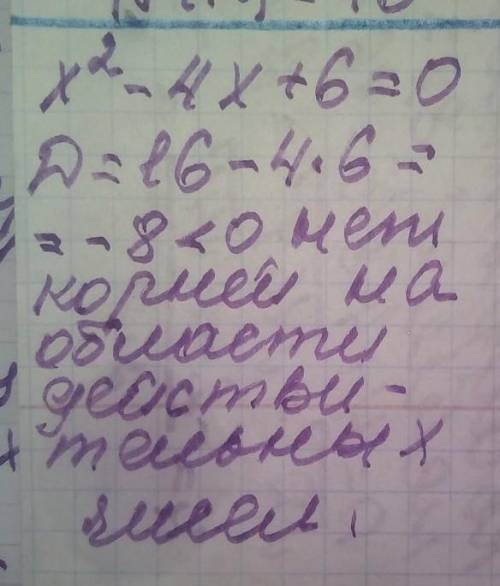 x² - 4x + 6 = 0
D = 16 - 4·6 =
= - 8 < 0 нет
корней на
области
действи-
тельных
чисел.